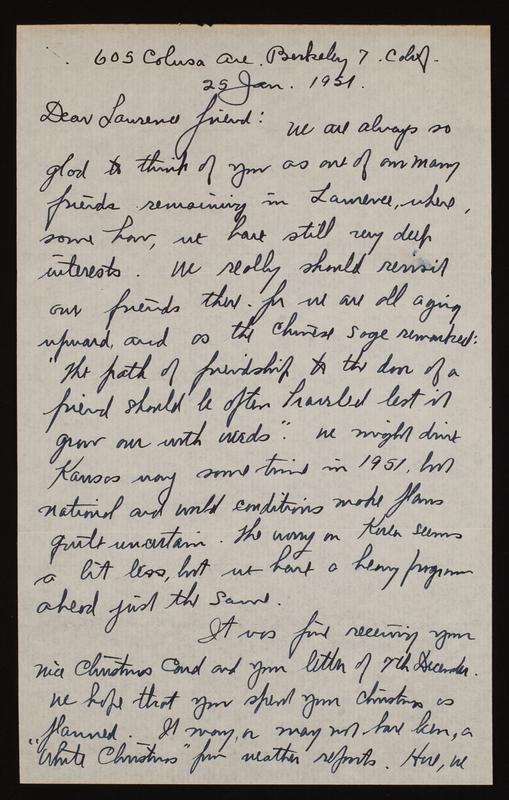 605 Colusa Ave. Berkeley 7. Calif.
25 Jan. 1951.
Dear Lawrence friend:
We are always so
glad to think of you as one of our many
friends remaining in Lawrence, where,
some how, we have still very deep
interests. We really should revisit
our friends there. for we are all aging
upward, and as the Chinese Sage remarked:
"The path of friendship to the door of a
friend should be often traveled lest it
grow over with weeds". We might drive
Kansas way some time in 1951, but
national and world conditions make plans
quite uncertain. The worry on Korea seems
a bit less, but we have a heavy program
ahead just the same.
It was fine receiving your
nice Christmas Card and your letter of 7th December.
We hope that you spent your Christmas as
planned. It may, or may not have been, a
"White Christmas" from weather reports. Here, we